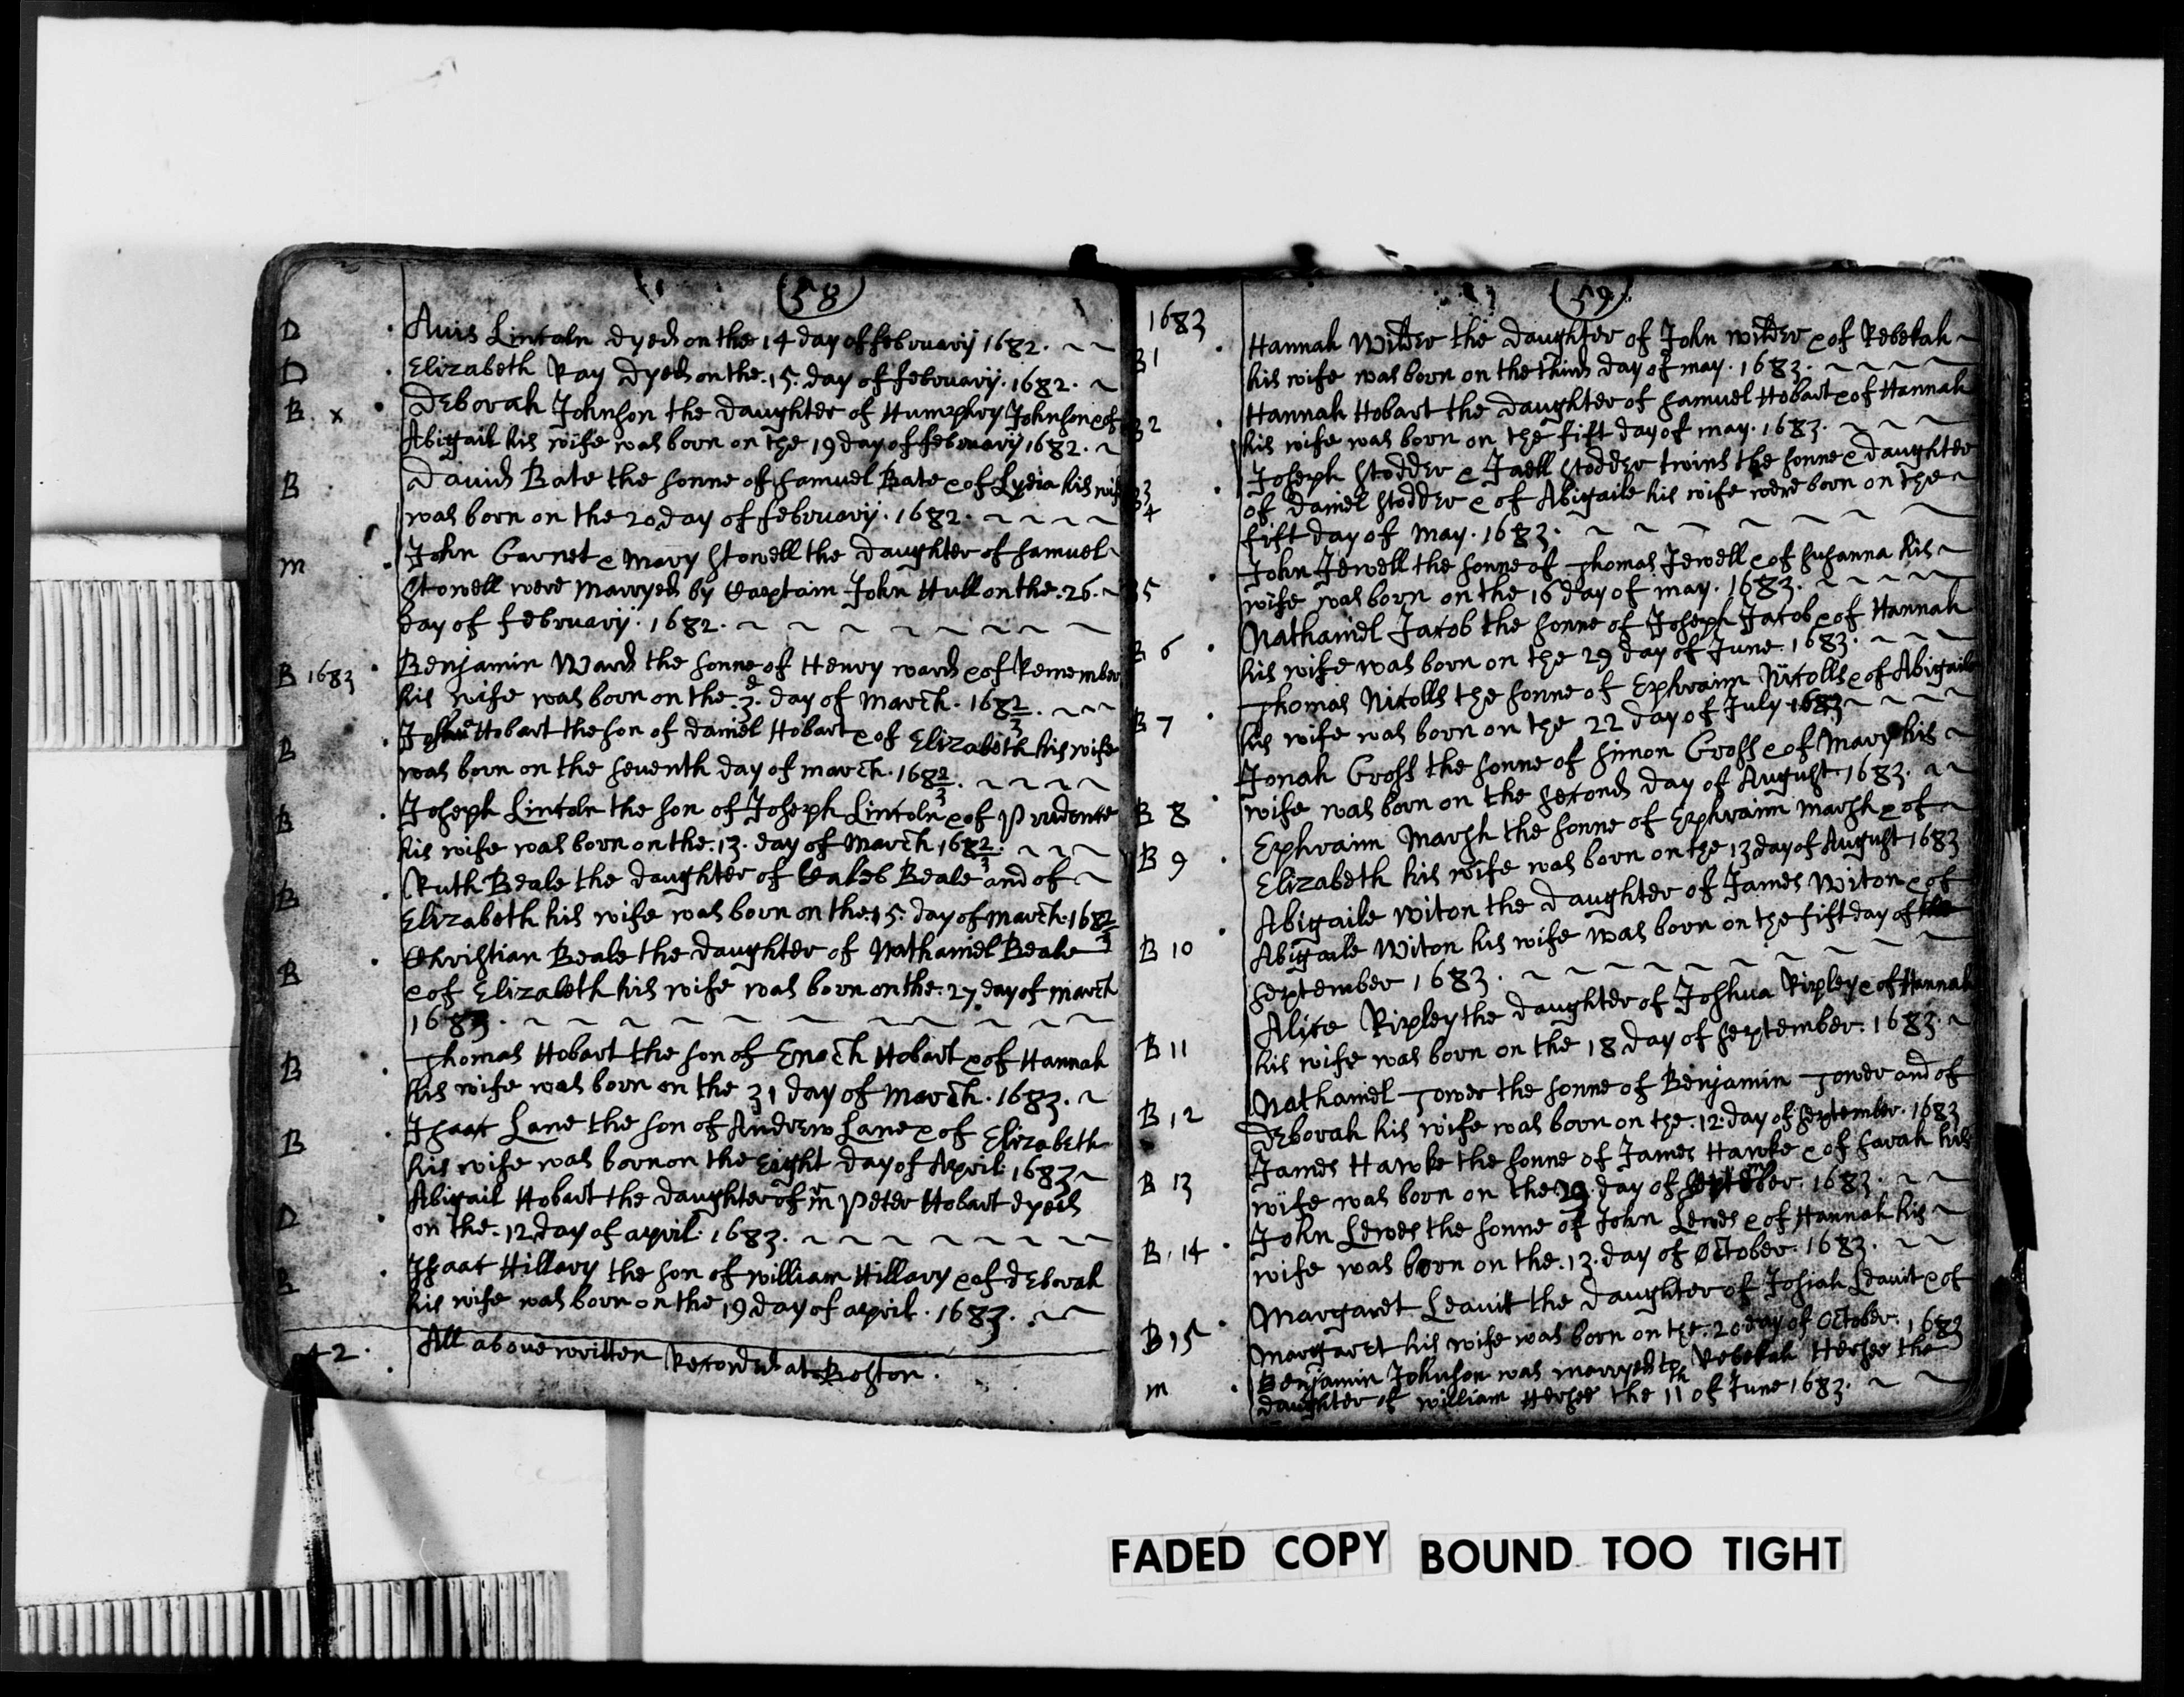 (58)
D Avis Lincoln dyed on the 14 day of february 1682.
D Elizabeth Ray dyed on the .15. day of february. 1682.
B x Deborah Johnson the daughter of Humphry Johnson & of
Abigail his wife was born on the 19 day of february 1682.
B David Bate the sonne of Samuel Bate & of Lydia his wife
was born on the 20 day of february. 1682.
m John Garnet & Mary Stowell the daughter of Samuel
Stowell were Marryed by Captain John Hull on the .26.
day of february. 1682.
B 1683 Benjamin Ward the sonne of Henry ward & of Remember
his wife was born on the .3d. day of March. 1682/3.
B Joshu Hobart the son of daniel Hobart & of Elizabeth his wife
was born on the seventh day of march. 1682/3.
B Joseph Lincoln the son of Joseph Lincoln & of Prudence
his wife was born on the .13. day of March 1682/3.
B Ruth Beale the daughter of Caleb Beale and of
Elizabeth his wife was born on the .15. day of march. 1682/3
B Christian Beale the daughter of Nathaniel Beale
& of Elizabeth his wife was born on the .27 day of march
1683.
B Thomas Hobart the son of Enoch Hobart & of Hannah
his wife was born on the 31 day of March. 1683.
B Isaac Lane the son of Andrew Lane & of Elizabeth
his wife was born on the Eight day of April. 1683
D Abigail Hobart the daughter of mr Peter Hobart dyed
on the .12 day of april. 1683.
B Isaac Hillary the son of william Hillary & of deborah
his wife was born on the 19 day of april. 1683.
42. All above written Recorded at Boston.
(59)
1683
B1 Hannah Wilder the daughter of John wilder & of Rebekah
his wife was born on the third day of may. 1683.
B2 Hannah Hobart the daughter of Samuel Hobart & of Hannah
his wife was born on the fift day of may. 1683.
B3 Joseph Stodder & Jaell Stodder twins the sonne & daughter
4 of daniel Stodder & of Abigaile his wife were born on the
fift day of may. 1683.
B5 John Jewell the sonne of Thomas Jewell & of Susanna his
wife was born on the 16 day of may. 1683.
B 6 Nathaniel Jacob the sonne of Joseph Jacob & of Hannah
his wife was born on the 29 day of June. 1683.
B 7 Thomas Nicolls the sonne of Ephraim Nicolls & of Abigaile
his wife was born on the 22 day of July 1683
B 8 Jonah Gross the sonne of Simon Gross & of Mary his
wife was born on the second day of August 1683.
B 9 Ephraim Marsh the sonne of Ephraim marsh & of
Elizabeth his wife was born on the 13 day of August 1683
B 10 Abigaile Witon the daughter of James Witon & of
Abigaile Witon his wife was born on the fift day of the
September 1683.
B 11 Alice Ripley the daughter of Joshua Ripley & of Hannah
his wife was born on the 18 day of September. 1683.
B 12 Nathaniel Tower the sonne of Benjamin Tower and of
Deborah his wife was born on the .12. day of September. 1683
B 13 James Hawke the sonne of James Hawke & of Sarah his
wife was born on the 29. day of September. 1683.
B. 14 John Lewes the sonne of John Lewes & of Hannah his
wife was born on the .13. day of October. 1683.
B 15 Margaret Leavit the daughter of Josiah Leavit & of
Margaret his wife was born on the .20 day of October. 1683
m Benjamin Johnson was marryed to Rebekah Hersee the
daughter of william Hersee the 11th of June 1683.
FADED COPY BOUND TOO TIGHT